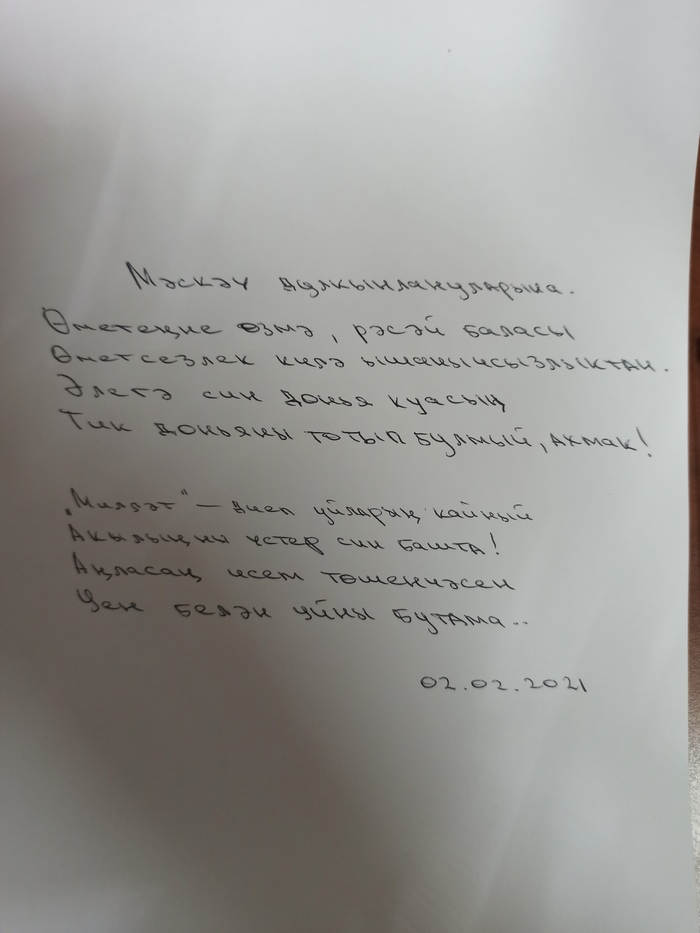 Мәскәү дулкынлануларына.
Өметеңне өзмә, рәсәй баласы
Өметсезлек килә ышанычсызлыктан.
Әлегә син донья куасың
Тик доньяны тотып булмый, ахмак!
„Милләт" — диеп уйларың кайный
Акылыңны үстер син башта!
Аңласаң исем төшенчәсен
Уен белән уйны бутама..
02.02.2021